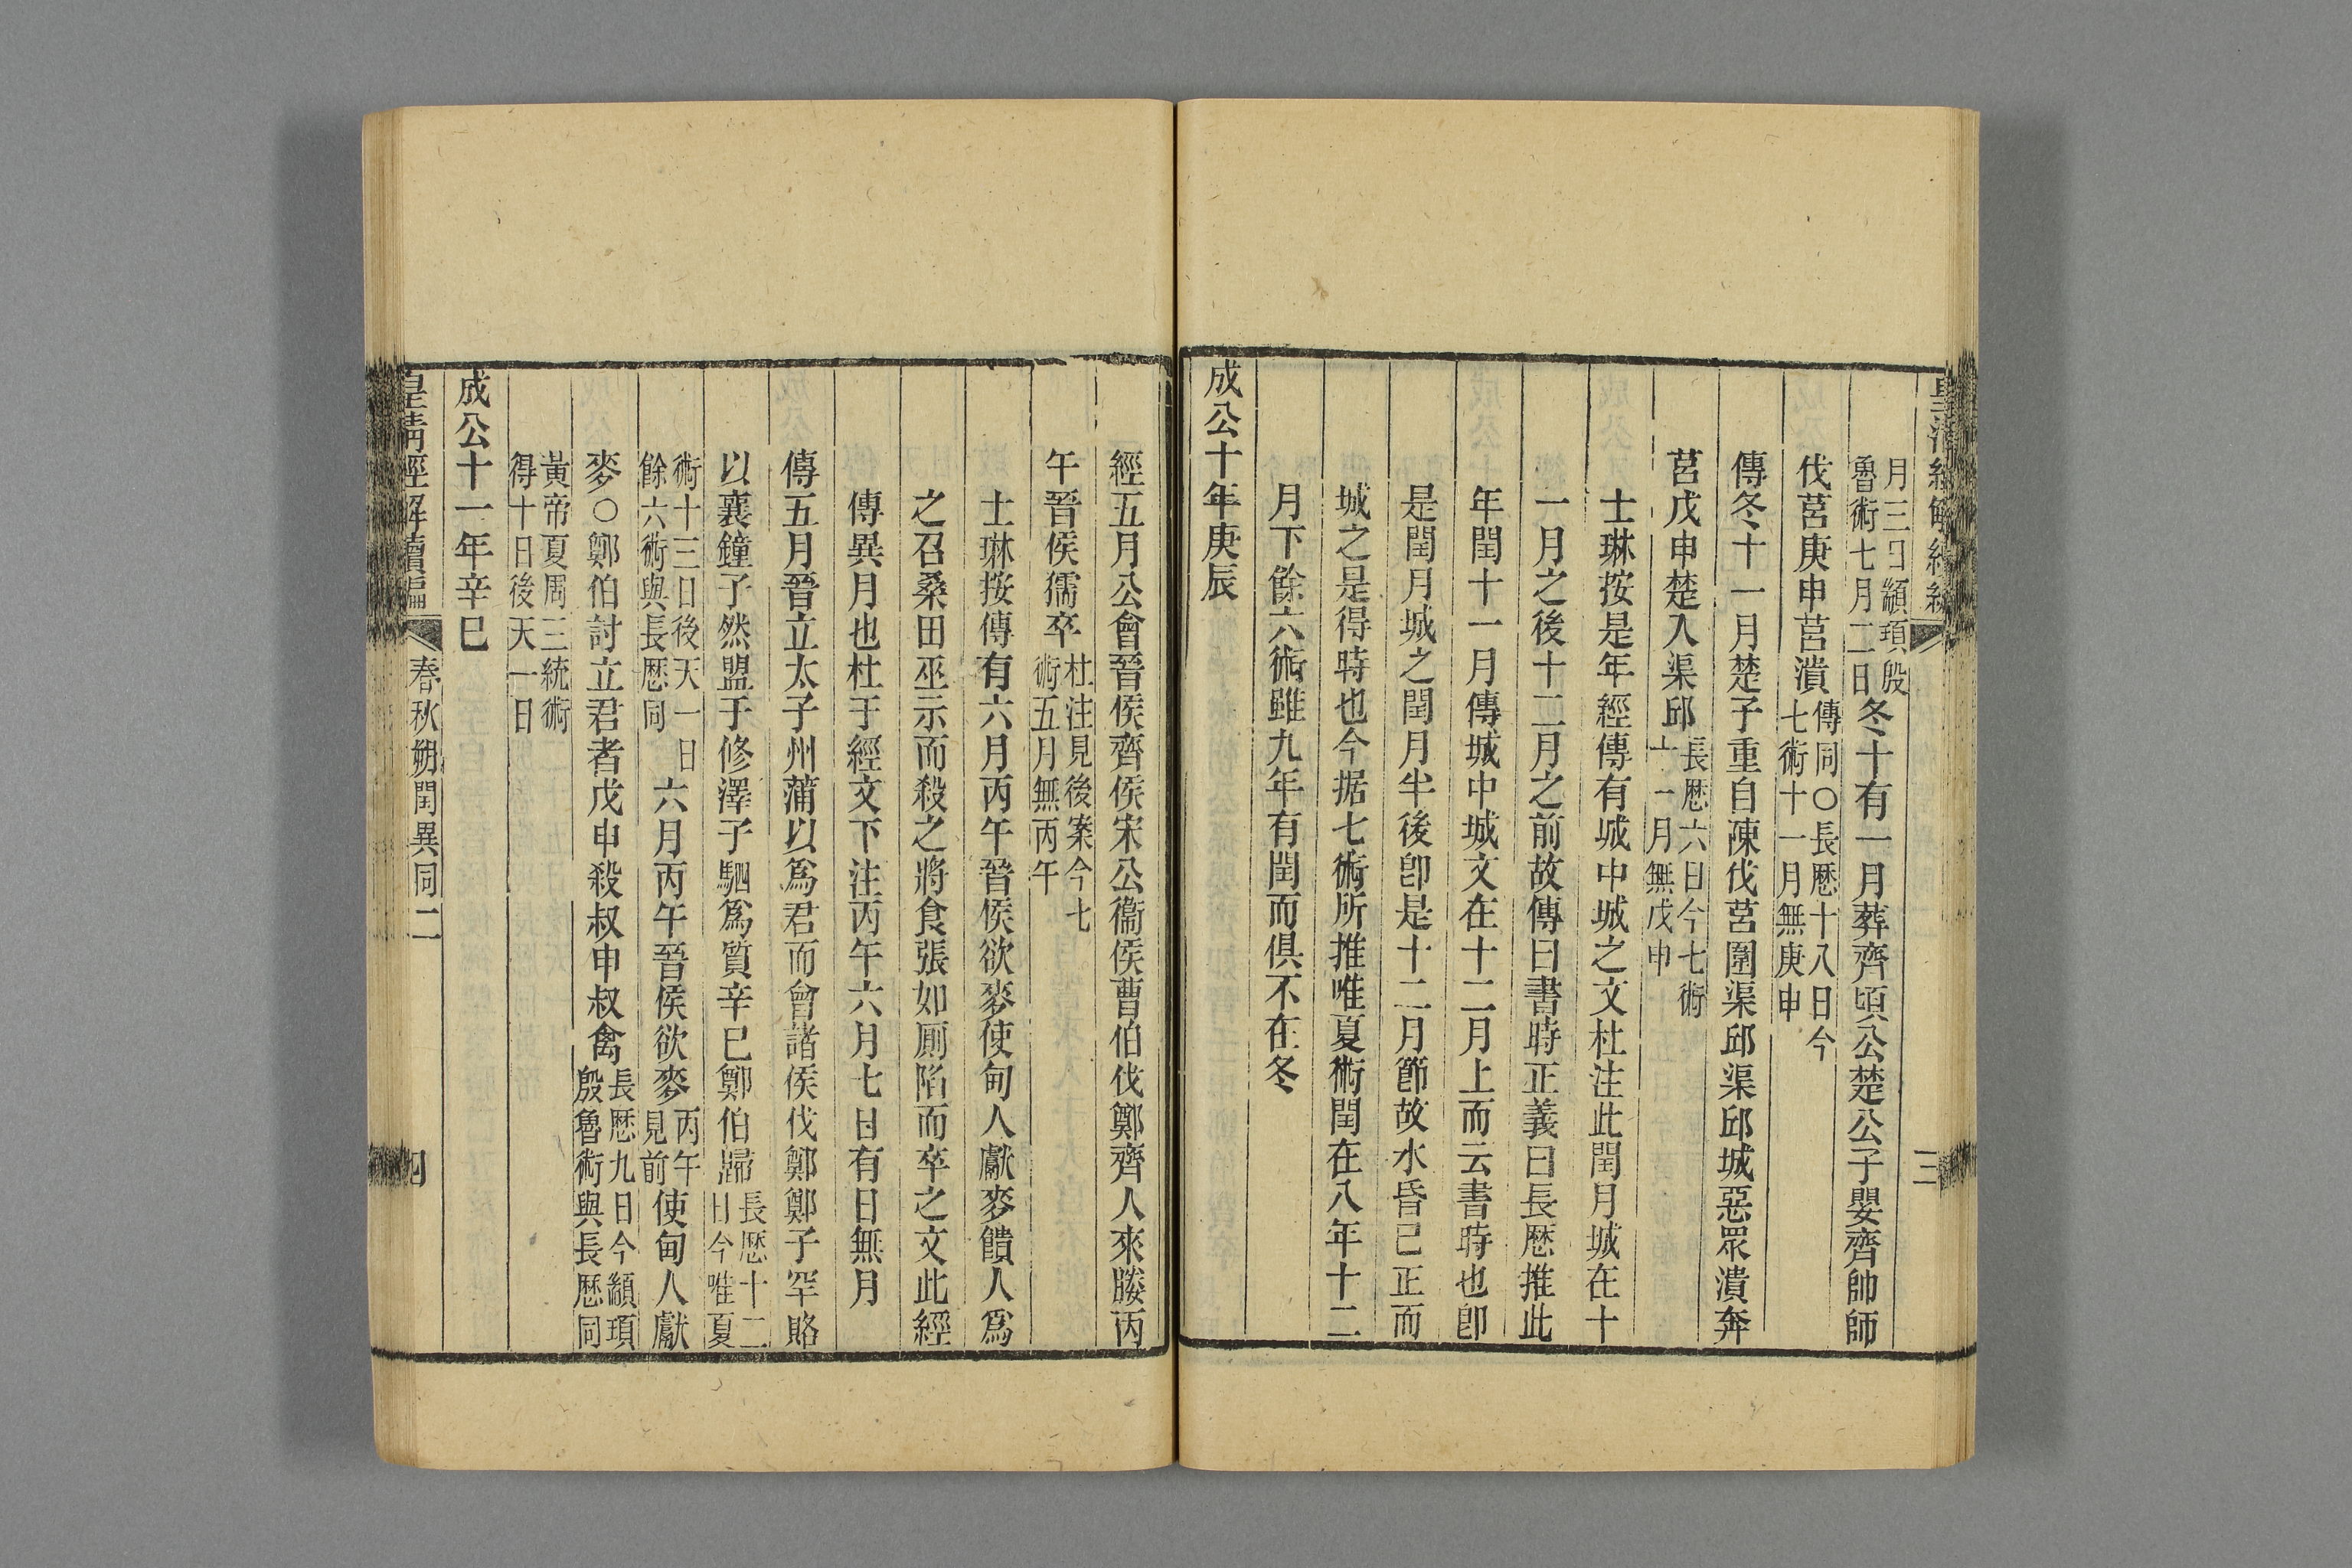 皇清經解續編
三
月三日顓頊殷
魯術七月二日冬十有一月葬齊頃公楚公子嬰齊帥師
伐莒庚申莒潰傳同〇長厯十八日今
七術十一月無庚申
傳冬十一月楚子重自陳伐莒圍渠邱渠邱城惡眾潰奔
莒戊申楚入渠邱長厯六日今七術
十一月無戊申
士琳按是年經傳有城中城之文杜注此閏月城在十
一月之後十二月之前故傳曰書時正義曰長厯推此
年閏十一月傳城中城文在十二月上而云書時也卽
是閏月城之閏月半後卽是十二月節故水昏已正而
城之是得時也今据七術所推唯夏術閏在八年十二
月下餘六術雖九年有閏而俱不在冬
成公十年庚辰
經五月公會晉侯齊侯宋公衞侯曹伯伐鄭齊人來媵丙
午晉侯獳卒杜注見後案今七
術五月無丙午
士琳按傳有六月丙午晉侯欲麥使甸人獻麥饋人爲
之召桑田巫示而殺之將食張如厠陷而卒之文此經
傳異月也杜于經文下注丙午六月七日有日無月
傳五月晉立太子州蒲以爲君而會諸侯伐鄭鄭子罕賂
以襄鐘子然盟于修澤子駟爲質辛巳鄭伯歸長厯十二
日今唯夏
術十三日後天一日
餘六術與長厯同六月丙午晉侯欲麥丙午
見前使甸人獻
麥〇鄭伯討立君者戊申殺叔申叔禽長厯九日今顓頊
殷魯術與長厯同
黃帝夏周三統術
得十日後天一日
成公十一年辛巳
皇淸經解續編
春秋朔閏異同二
四